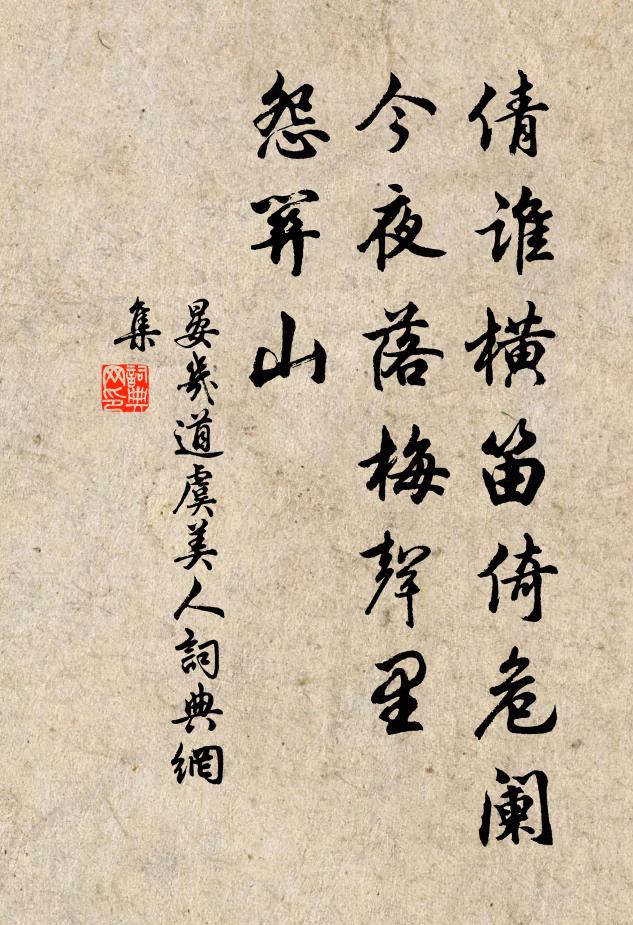 倩谁橫笛倚危阑
今夜落梅聲里
怨关山
晏幾道虞美人詞典網
集
詞典
网印